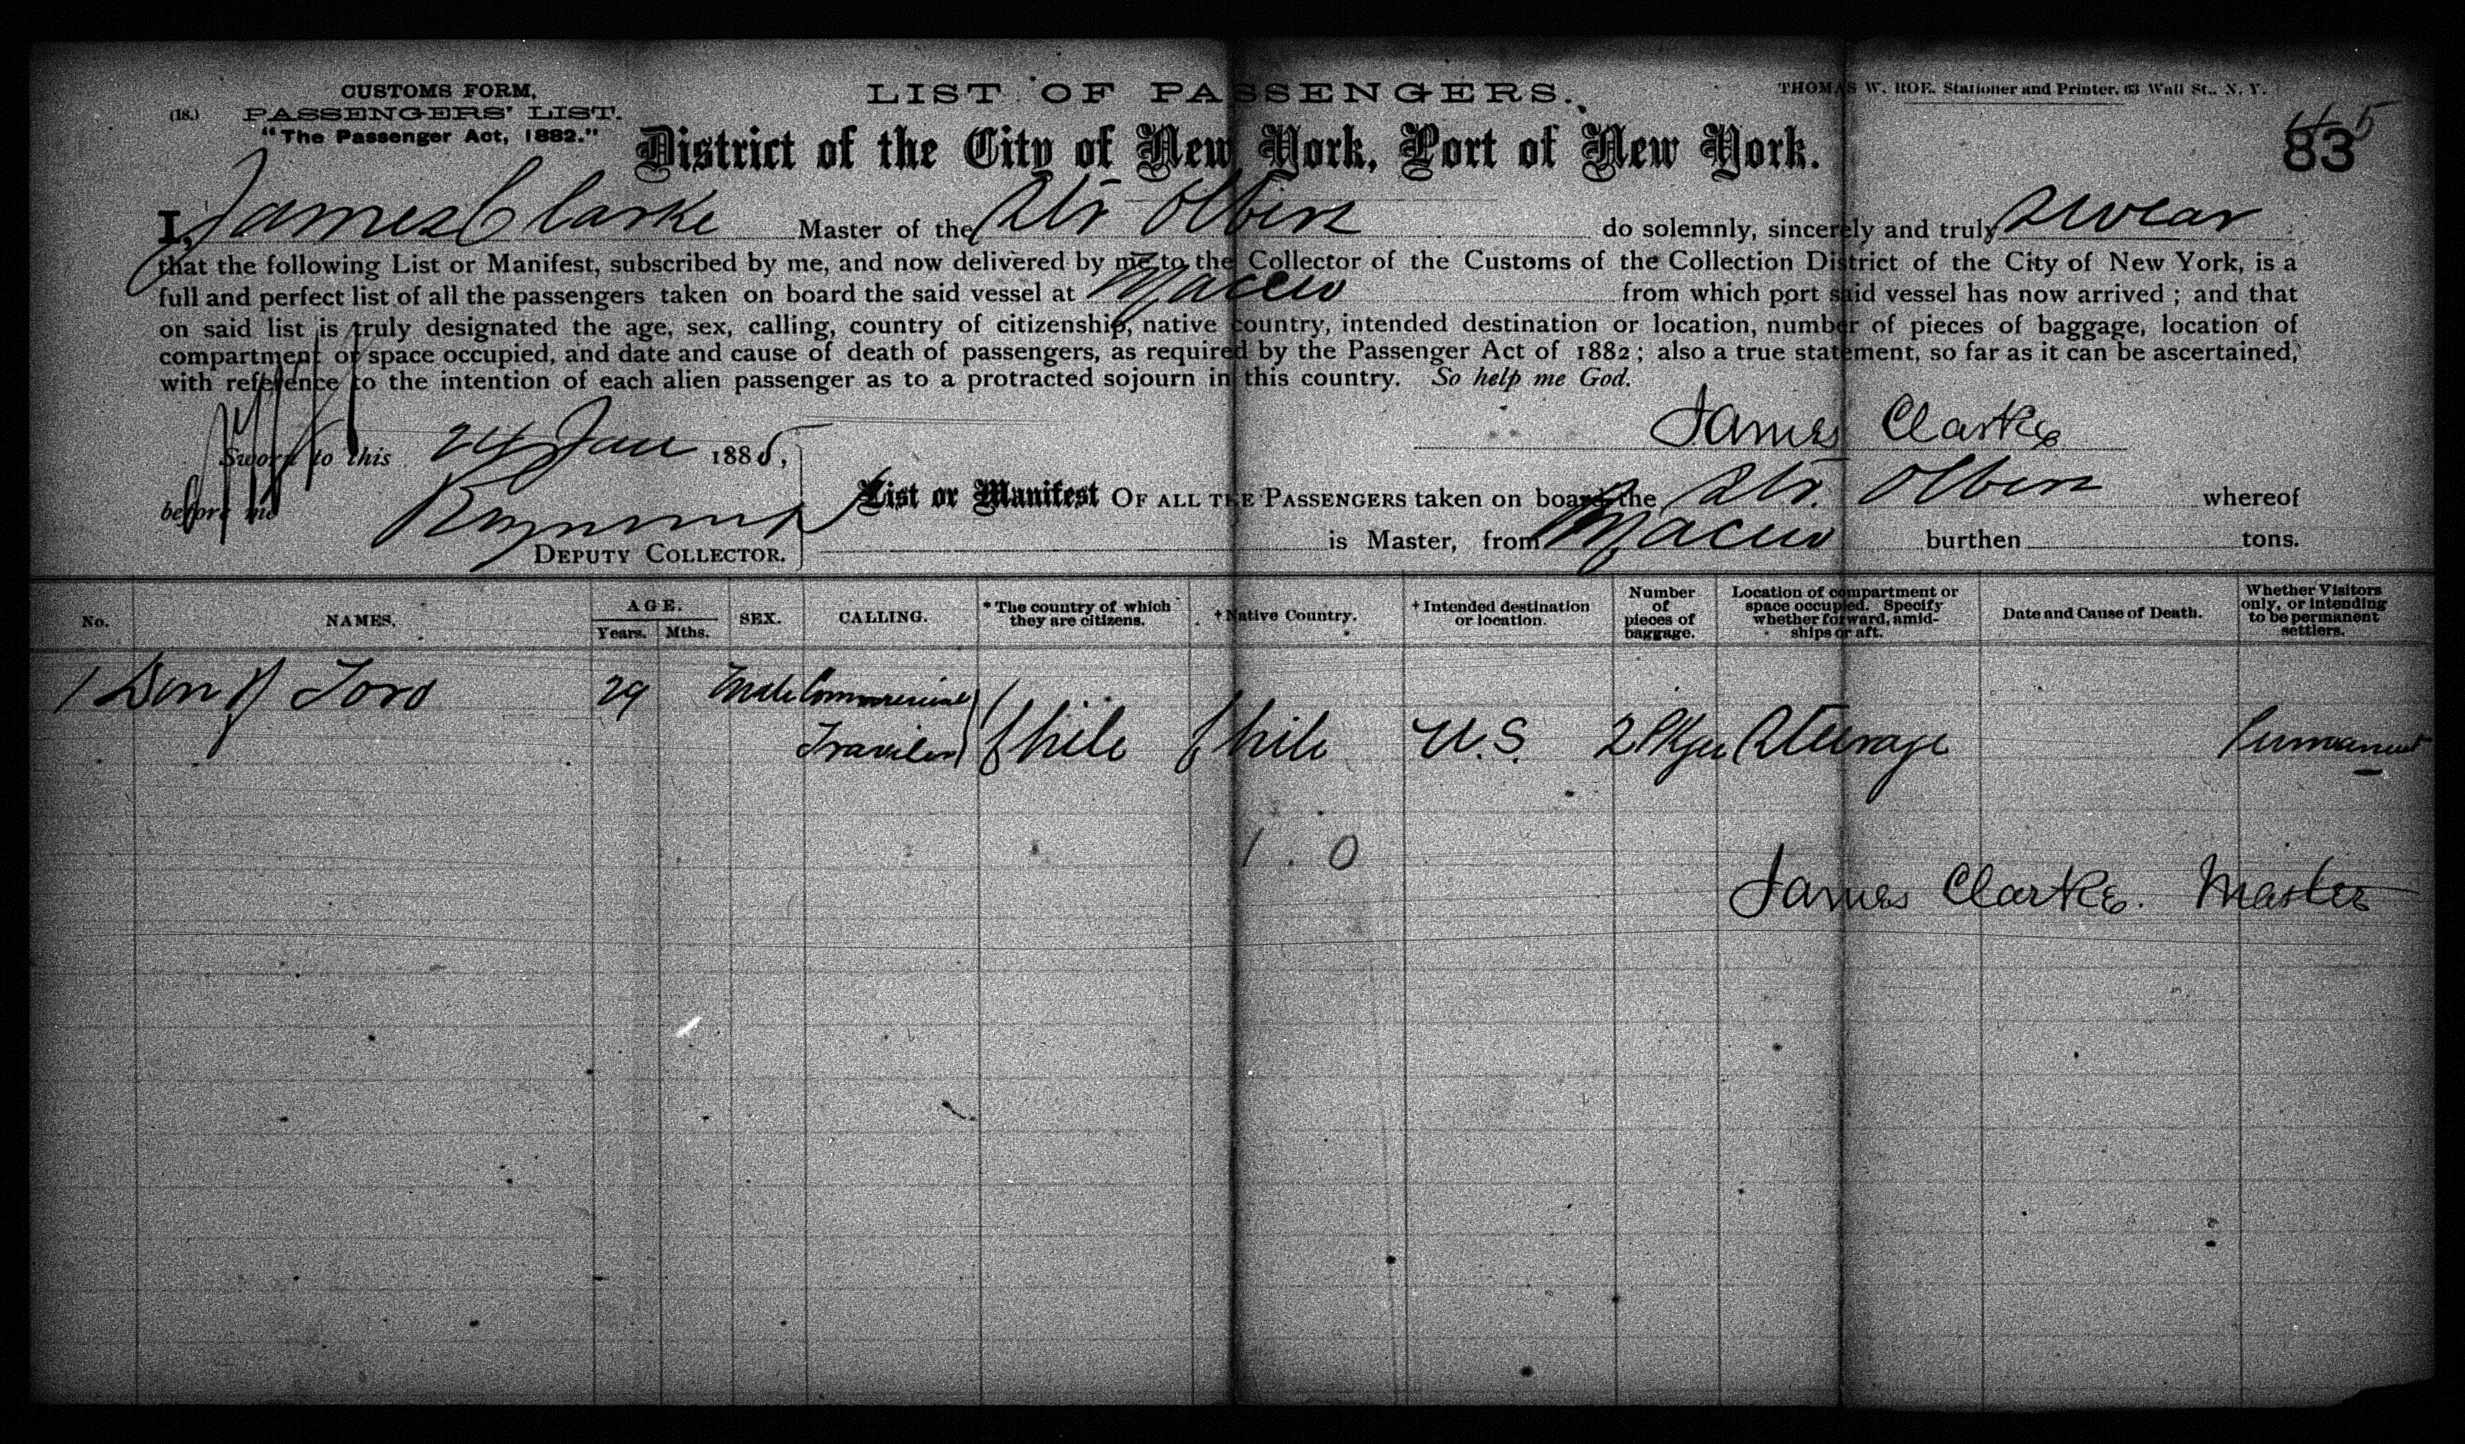 CUSTOMS FORM,
(18.) PASSENGERS' LIST.
"The Passenger Act, 1882."
LIST OF PASSENGERS.
THOMAS W. ROE, Stationer and Printer, 63 Wall St., N. Y.
District of the City of New York, Port of New York.
83
I, James Clarke Master of the Str Olbers do solemnly, sincerely and truly swear
that the following List or Manifest, subscribed by me, and now delivered by me to the Collector of the Customs of the Collection District of the City of New York, is a
full and perfect list of all the passengers taken on board the said vessel at Maceio from which port said vessel has now arrived ; and that
on said list is truly designated the age, sex, calling, country of citizenship, native country, intended destination or location, number of pieces of baggage, location of
compartment or space occupied, and date and cause of death of passengers, as required by the Passenger Act of 1882 ; also a true statement, so far as it can be ascertained,
with reference to the intention of each alien passenger as to a protracted sojourn in this country. So help me God.
James Clarke
Sworn to this 24 Jan 1885,
before me
DEPUTY COLLECTOR.
List or Manifest OF ALL THE PASSENGERS taken on board the Str. Olbers whereof
is Master, from Maceio burthen tons.
No. NAMES. AGE. Years. Mths. SEX. CALLING. * The country of which they are citizens. † Native Country. † Intended destination or location. Number of pieces of baggage. Location of compartment or space occupied. Specify whether forward, amidships or aft. Date and Cause of Death. Whether Visitors only, or intending to be permanent settlers.
1 Toro 29 Male Commercial Traveler Chile Chile U.S. 2 Pkges Steerage Permanent
1 . 0
James Clarke. Master